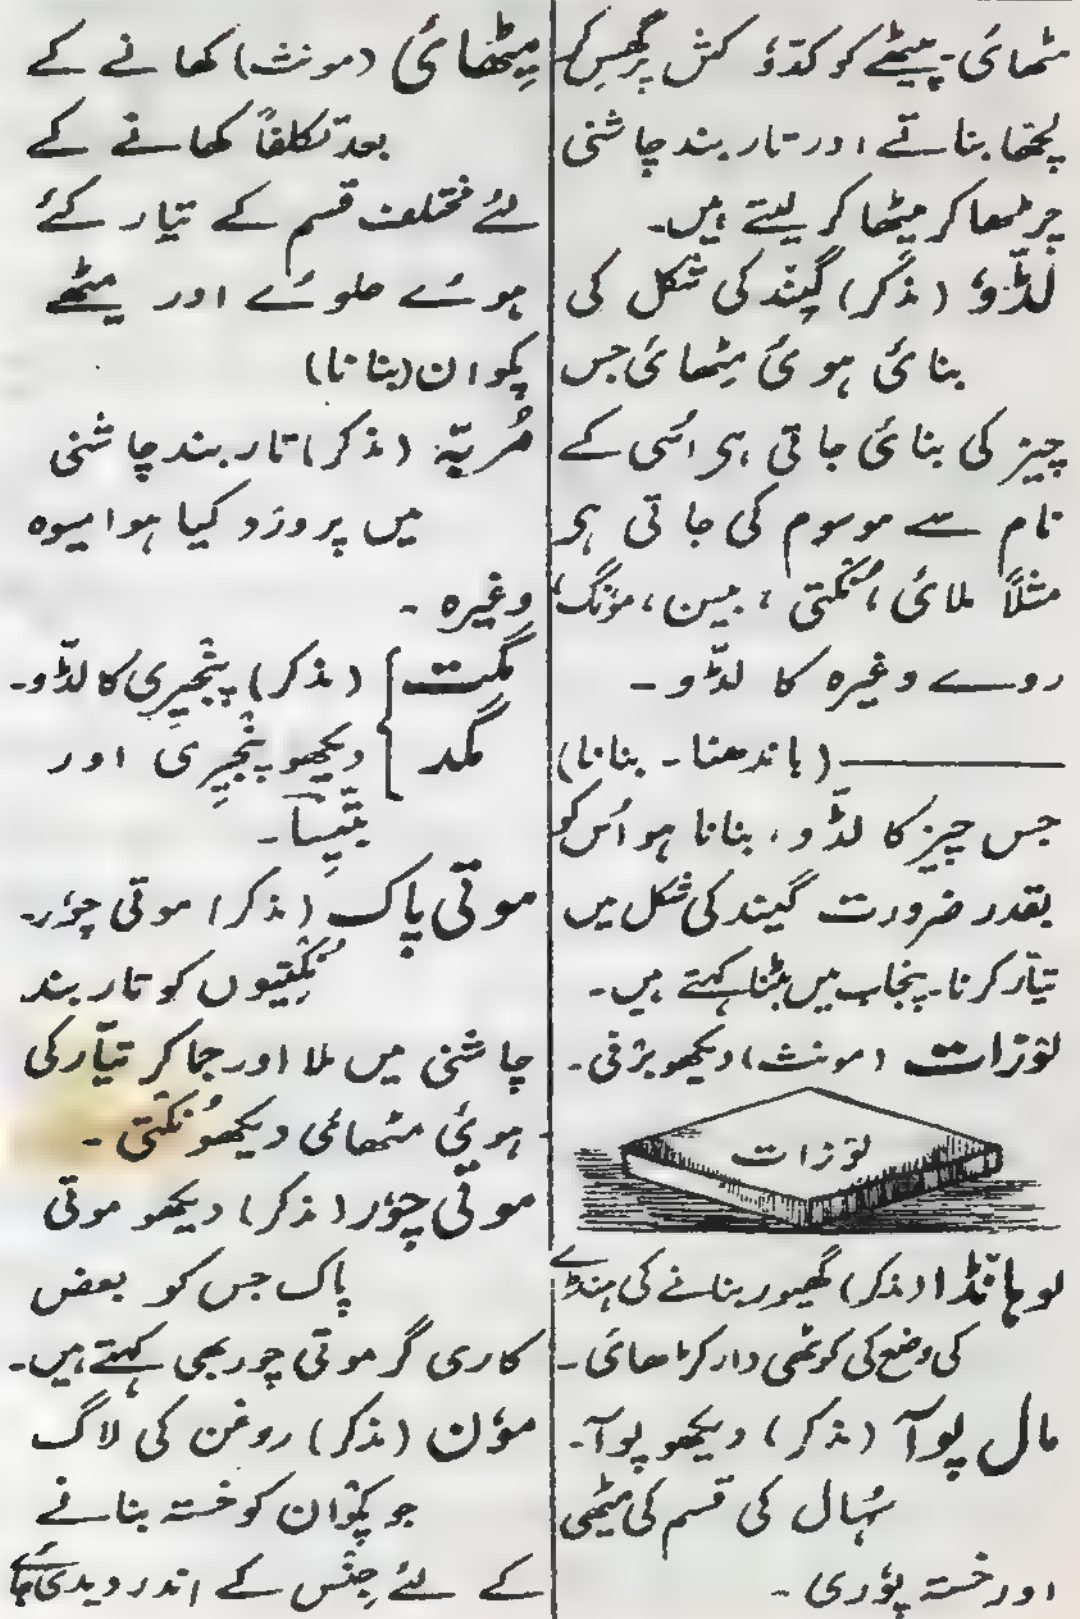 مٹھائی۔ پیٹھے کو کدّو کش پر گھِس کر
لچھّا بناتے اور تار بند چاشنی
چڑھا کر میٹھا کر لیتے ہیں۔
لڈّو (مذکر) گیند کی شکل کی
بنائی ہوئی مِٹھائی جس
چیز کی بنائی جاتی ہو اسُی کے
نام سے موسوم کی جاتی ہی
مثلاً ملائی، نُکتی، بیسن، مونگ،
روے وغیرہ کا لڈّو۔
——— (باندھنا۔ بنانا)
جس چیز کا لڈّو، بنانا ہو اُس کو
بقدر ضرورت گیند کی شکل میں
تیّار کرنا۔ پنجاب میں بٹنا کہتے ہیں۔
لَوزات (مونث) دیکھو برْفی۔
لَوزات
لوہانڈا (مذکر) گھیور بنانے کی ہنڈے
کی وضع کی کوٹھی دار کڑھائی۔
مال پوآ (مذکر) دیکھو پوآ۔
سُہال کی قسم کی میٹھی
اور خستہ پوُری۔
مِٹھائی (مونث) کھانے کے
بعد تکلفاً کھانے کے
لئے مختلف قسم کے تیار کئے
ہوئے حلوئے اور میٹھے
پکوان (بنانا)
مُربّہ (مذکر) تار بند چاشنی
میں پروزد کیا ہوا میوہ
وغیرہ۔
مگت (مذکر) پنْجیری کا لڈّو۔
مگد دیکھو پنْجیری اور
بتّیِسا۔
موتی پاک (مذکر) موتی چوُر۔
نُکْتِیوں کو تار بند
چاشنی میں ملا اور جما کر تیّار کی
ہوئی مٹھائی دیکھو نُکتی۔
موتی چوُر (مذکر) دیکھو موتی
پاک جس کو بعض
کاری گر موتی چور بھی کہتے ہیں۔
موُن (مذکر) روغن کی لاگ
جو پکْوان کو خستہ بنانے
کے لئے جِنْس کے اندر دیدی جائے